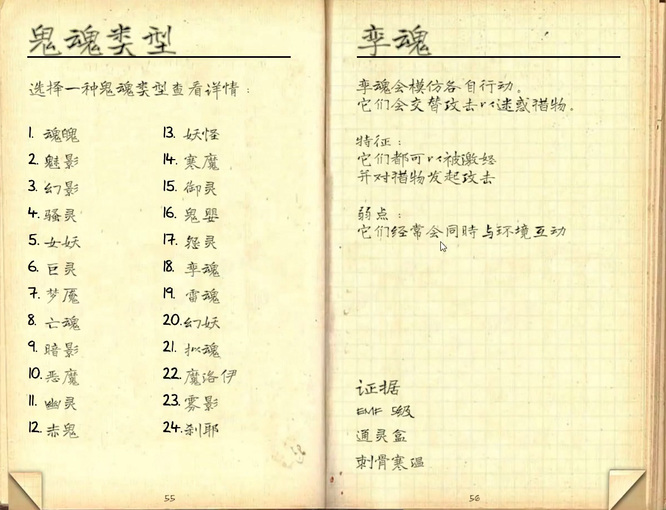 鬼魂类型
选择一种鬼魂类型查看详情：
1. 魂魄
2. 魅影
3. 幻影
4. 骚灵
5. 女妖
6. 巨灵
7. 梦魇
8. 亡魂
9. 暗影
10. 恶魔
11. 幽灵
12. 赤鬼
13. 妖怪
14. 寒魔
15. 御灵
16. 鬼婴
17. 怨灵
18. 孪魂
19. 雷魂
20. 幻妖
21. 拟魂
22. 魔洛伊
23. 雾影
24. 刹耶
55
孪魂
孪魂会模仿各自行动。
它们会交替攻击以迷惑猎物。
特征：
它们都可以被激怒
并对猎物发起攻击
弱点：
它们经常会同時与环境互动
证据
EMF 5级
通灵盒
刺骨寒温
56